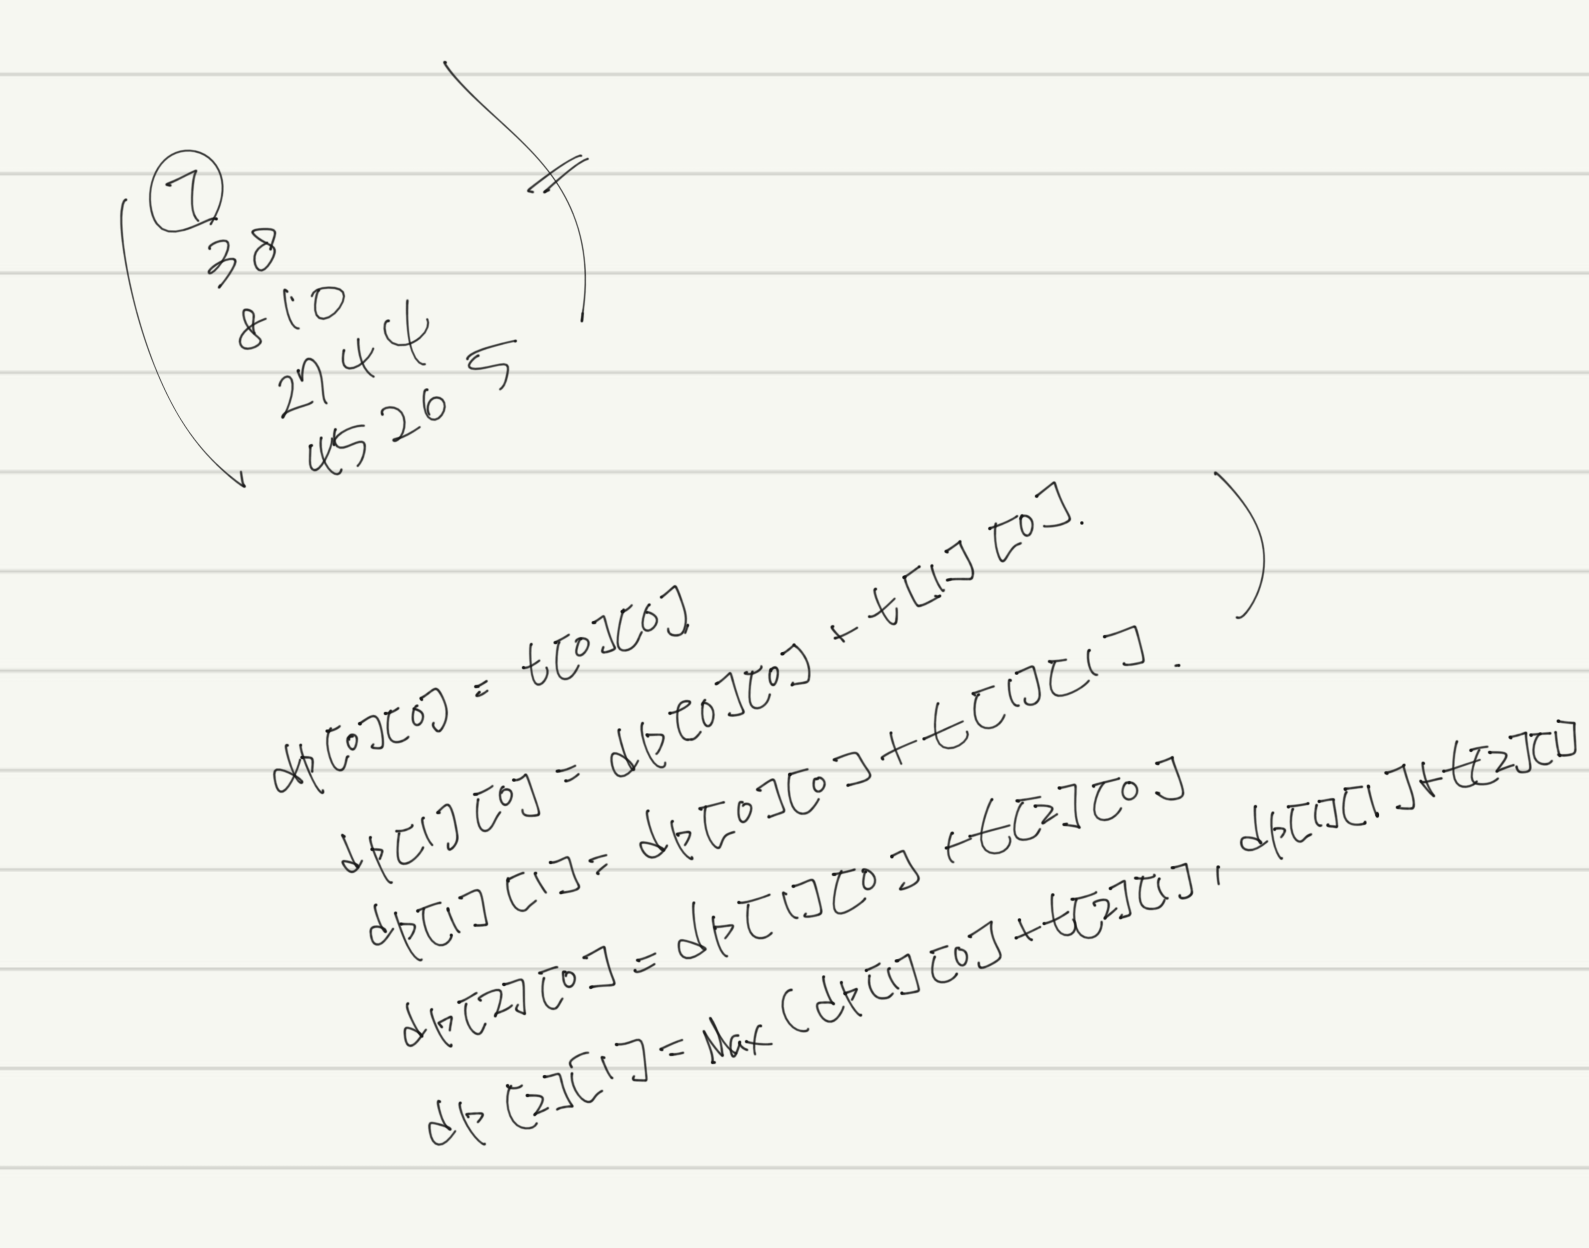 7
3 8
8 1 0
2 7 4 4
4 5 2 6 5
dp[0][0] = t[0][0]
dp[1][0] = dp[0][0] + t[1][0].
dp[1][1] = dp[0][0] + t[1][1].
dp[2][0] = dp[1][0] + t[2][0]
dp[2][1] = Max (dp[1][0] + t[2][1], dp[1][1] + t[2][1]